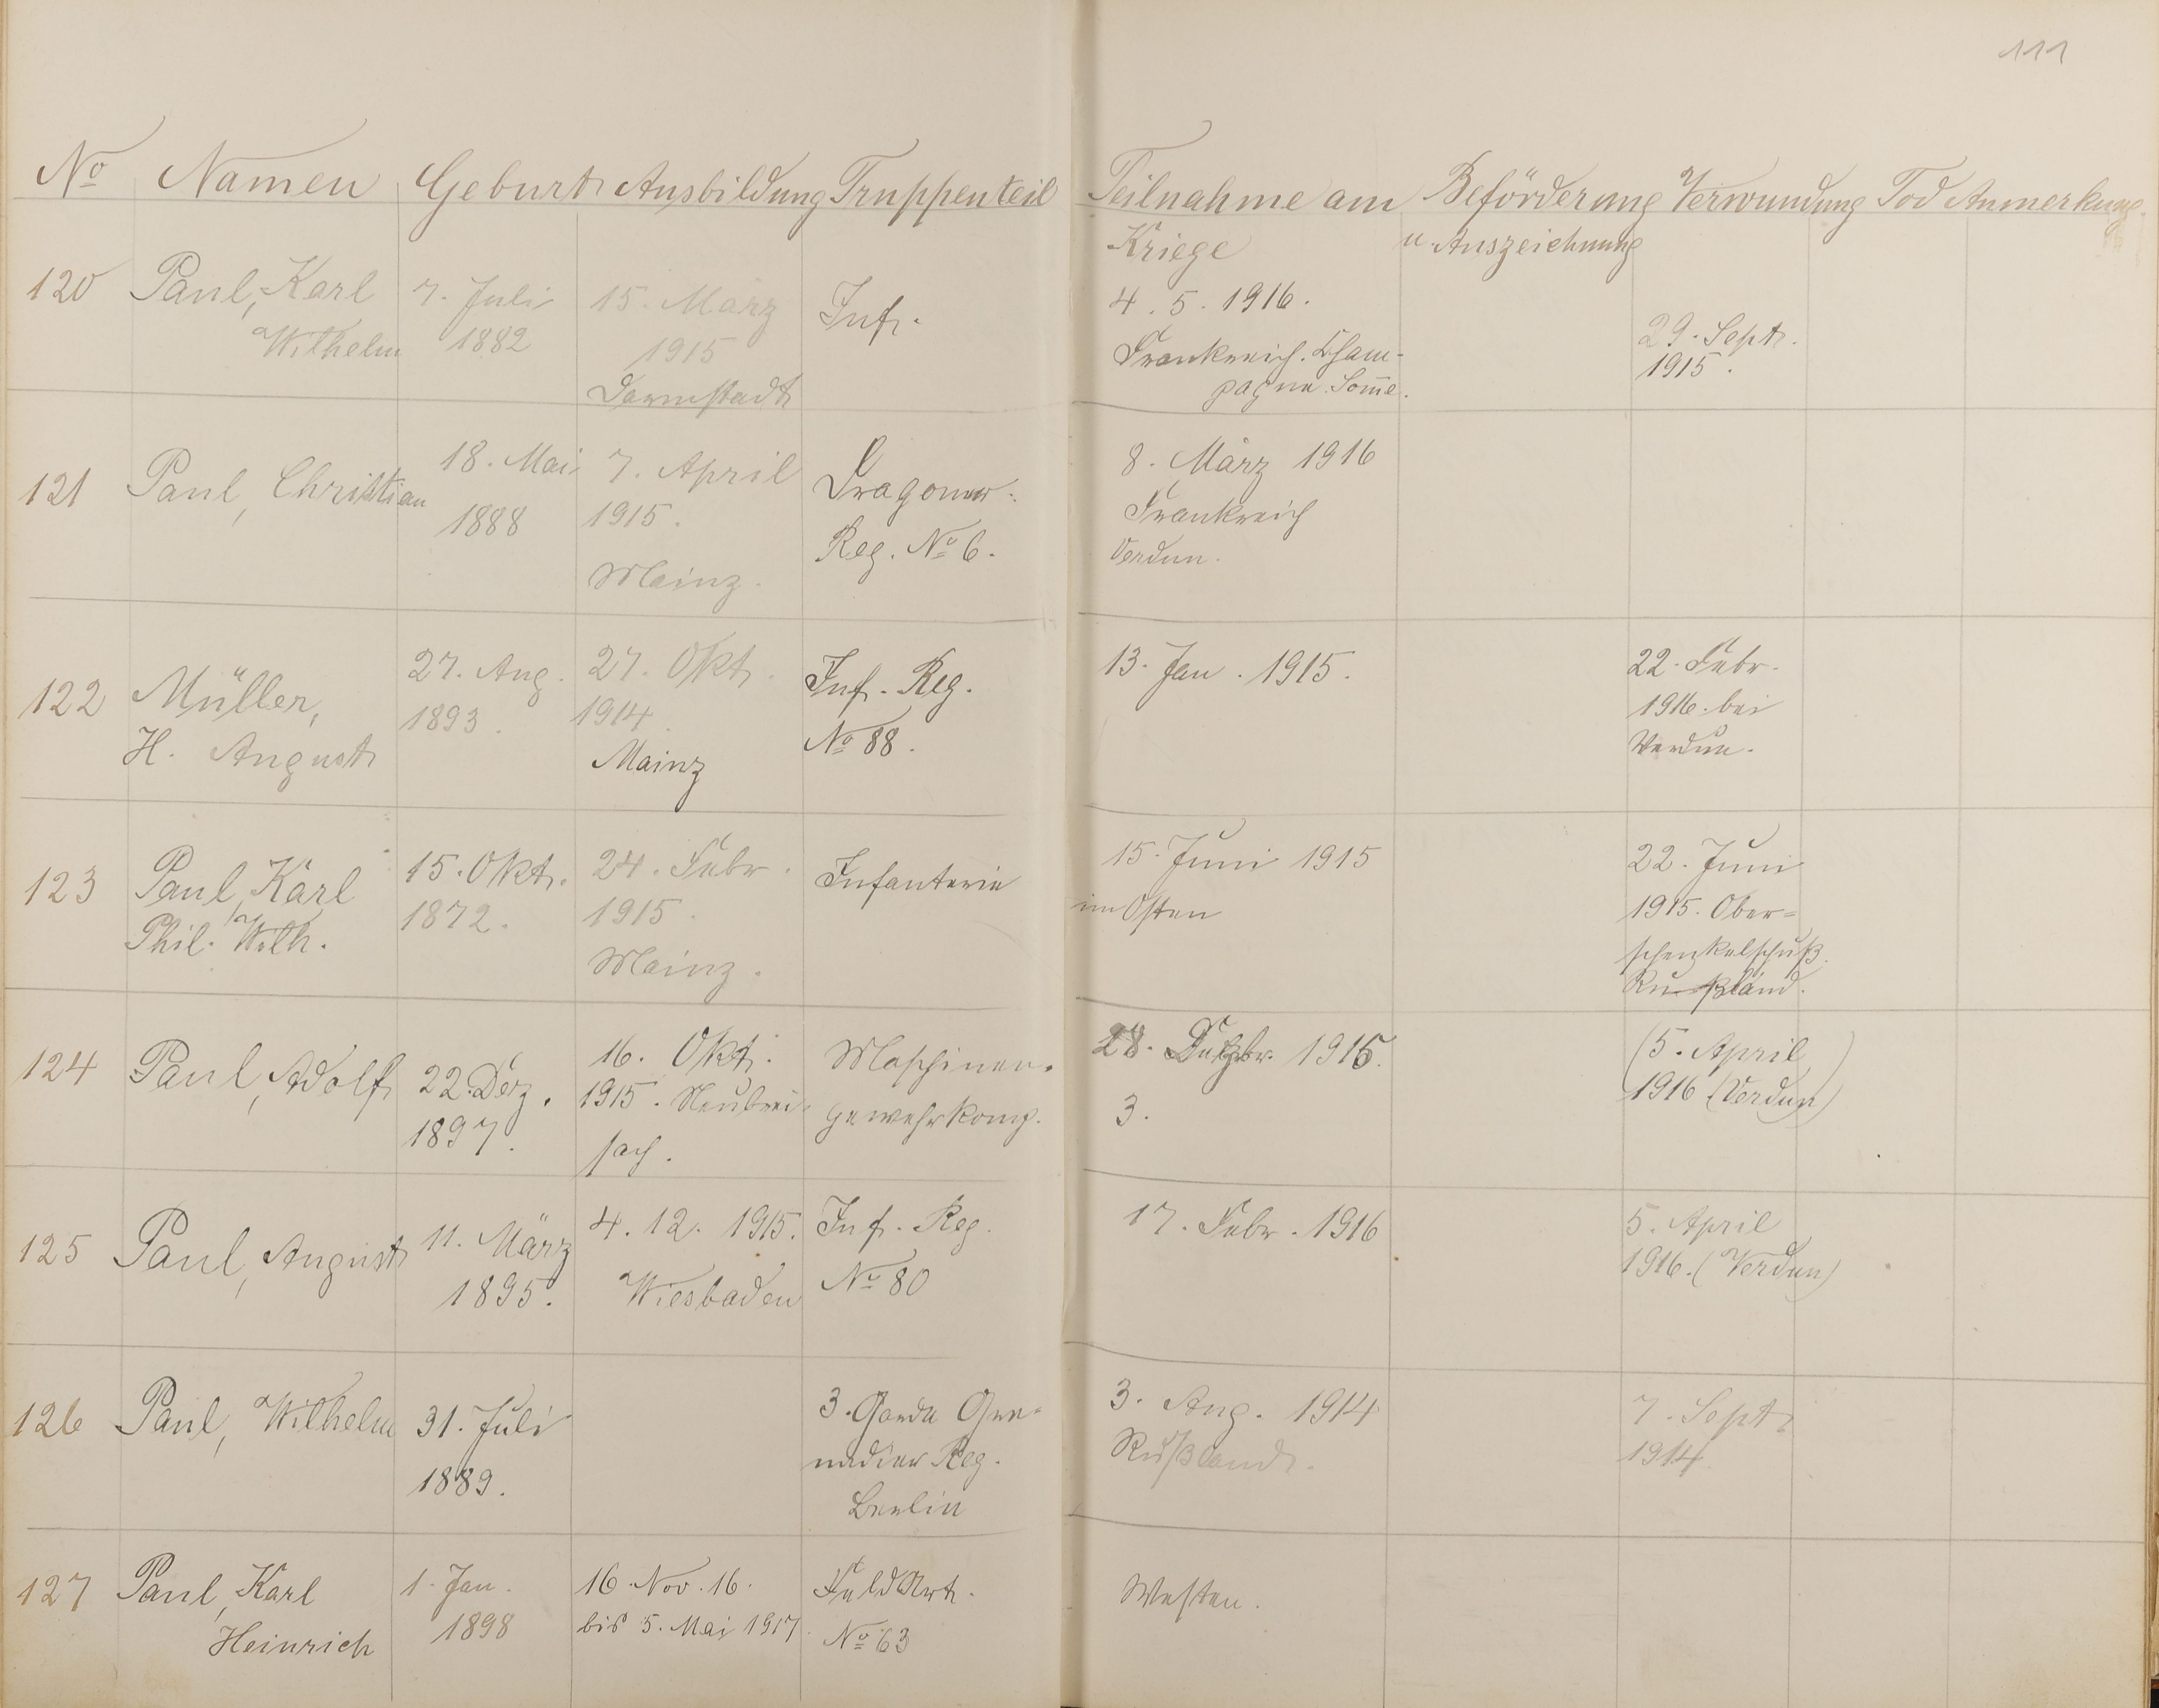 111
No Namen Geburt Ausbildung Truppenteil Teilnahme am Beförderung Verwundung Tod Anmerkung.
Kriege u. Auszeichnung
120 Paul, Karl 7. Juli 15. März Inf. 4. 5. 1916. 29. Sept.
Wilhelm 1882 1915 Frankreich. Cham- 1915.
Darmstadt pagne. Som̄e.
121 Paul, Christian 18. Mai 7. April Dragoner- 8. März 1916
1888 1915. Reg. No 6. Frankreich
Mainz. Verdun.
122 Müller, 27. Aug. 27. Okt. Inf. Reg. 13. Jan. 1915. 22. Febr.
H. August 1893. 1914. No 88. 1916. bei
Mainz Verdun.
123 Paul, Karl 15. Okt. 24. Febr. Infanterie 15. Juni 1915 22. Juni
Phil. Wilh. 1872. 1915. im Osten 1915. Ober=
Mainz. schenkelschuß.
Rußland.
124 Paul, Adolf 22. Dez. 16. Okt. Maschinen- 1915. (5. April
1897. 1915. Neubrei- gewehrkomp. 3. 1916 (Verdun)
sach.
125 Paul, August 11. März 4. 12. 1915. Inf. Reg. 17. Febr. 1916 5. April
1895. Wiesbaden No 80 1916. (Verdun)
126 Paul, Wilhelm 31. Juli 3. Garde Gre- 3. Aug. 1914 7. Sept.
1889. nadier Reg. Rußland. 1914
Berlin
127 Paul, Karl 1. Jan. 16. Nov. 16. Feld Art. Westen.
Heinrich 1898 bis 5. Mai 1917. No 63